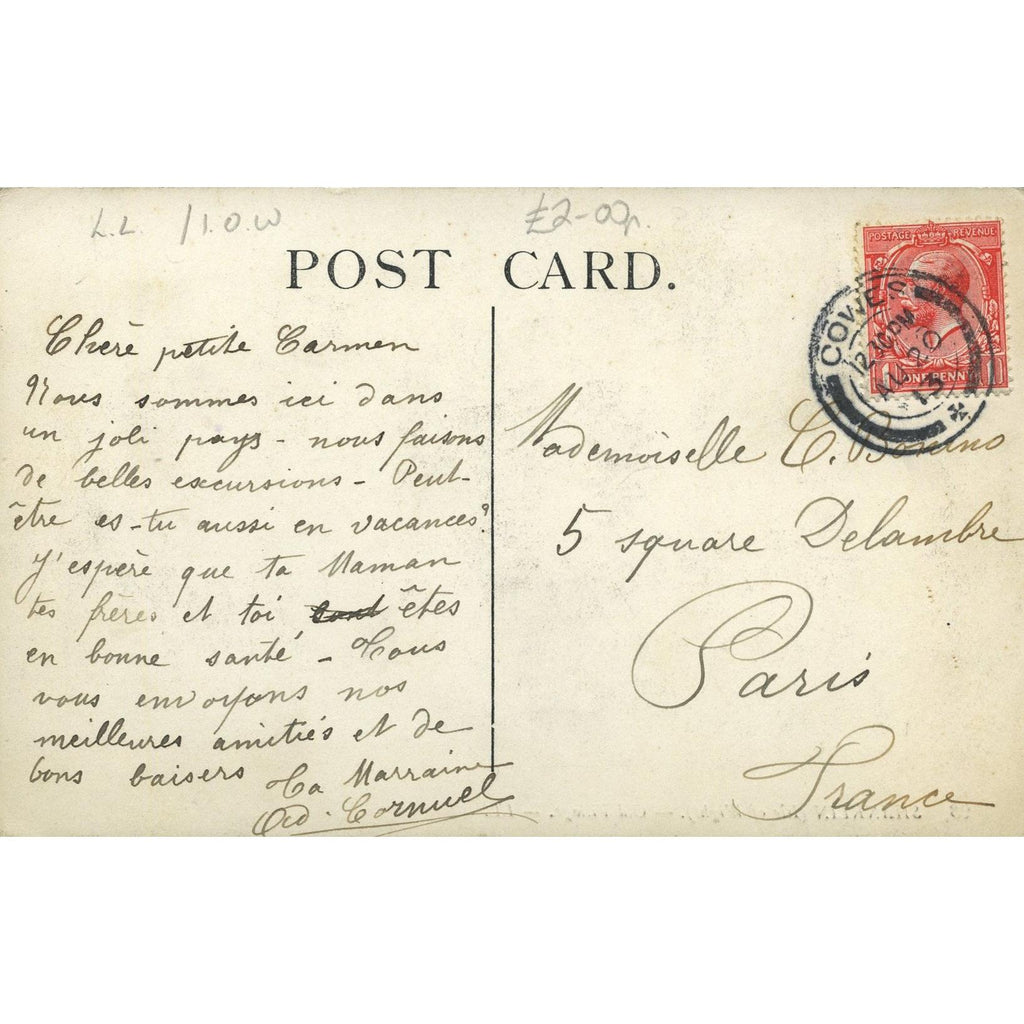 L.L. /I.O.W
£2-00p.
POST CARD.
POSTAGE REVENUE
ONE PENNY
COWES
12.10PM
AU 20
13
Chère petite Carmen
Nous sommes ici dans
un joli pays - nous faisons
de belles excursions - Peut-
être es-tu aussi en vacances?
J'espère que ta Maman
tes frères et toi sont êtes
en bonne santé - Tous
vous envoyons nos
meilleures amitiés et de
bons baisers Ta Marraine
Ad. Cornuel
Mademoiselle C.
5 square Delambre
Paris
France